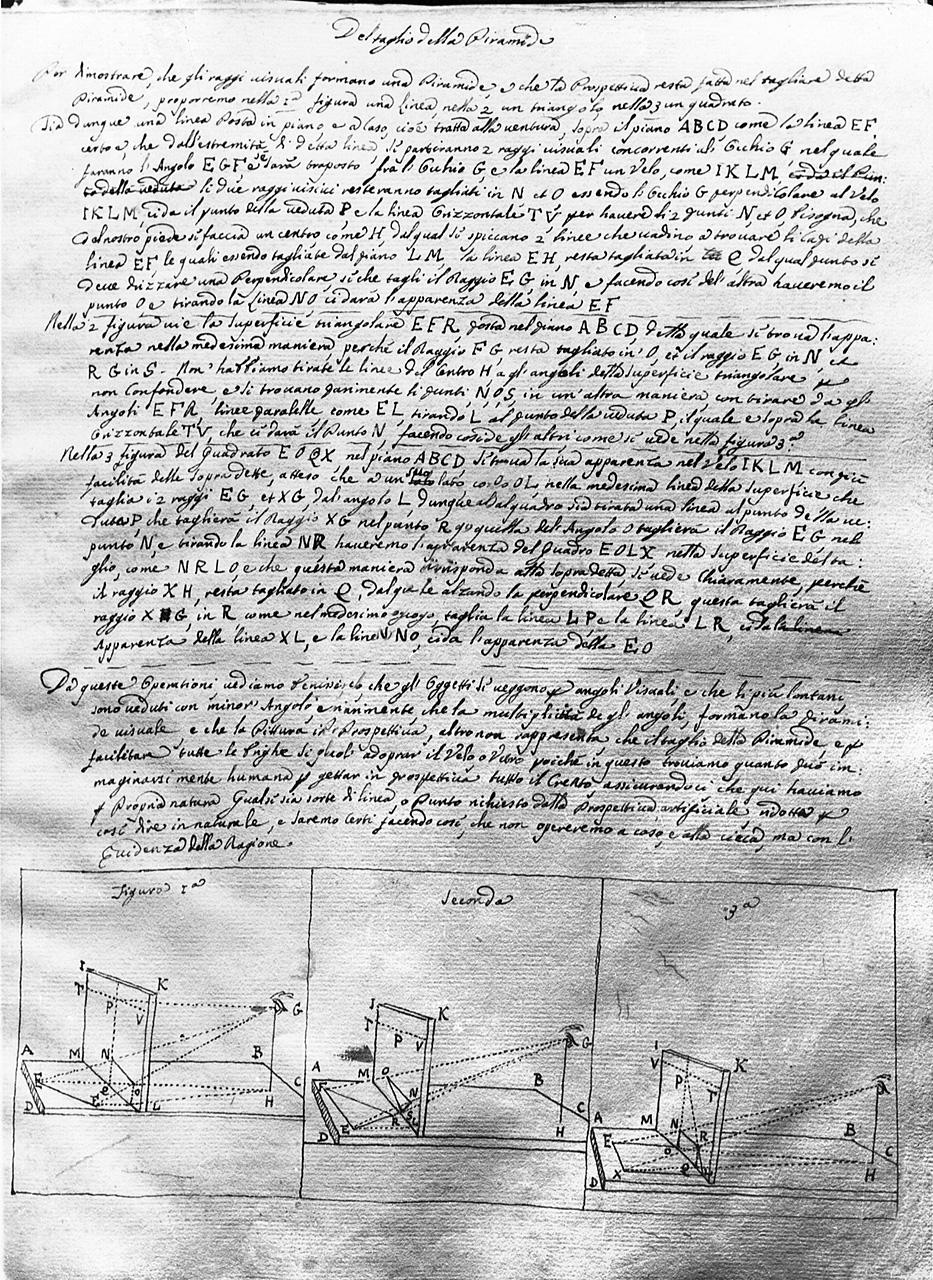 Del taglio della Piramide
Per dimostrare, che gli raggi visuali formano una Piramide, e che la Prospettiva resta fatta nel tagliare detta
Piramide, proporremo nella 1ª figura una linea nella 2 un triangolo nella 3 un quadrato.
Sia dunque una linea Posta in piano e a caso, cioè tratta alla ventura, sopra il piano ABCD come la linea EF,
certo è che dall'estremità di detta linea si partiranno 2 raggi visuali concorrenti all'Occhio G nel quale
faranno l'Angolo EGF e sarà traposto fra l'Occhio G, e la linea EF un Velo, come IKLM
della veduta li due raggi visivi resteranno tagliati in N et O essendo l'Occhio G perpendicolare al Velo
IKLM ci da il punto della veduta P e la linea Orizzontale TV per havere li 2 punti N et O bisogna, che
dal nostro piede si faccia un centro come H, dal qual si spiccano 2 linee che vadino a trovare li capi della
linea EF le quali essendo tagliate dal piano LM la linea EH resta tagliata in Q dal qual punto si
deve drizzare una Perpendicolare, si che tagli il Raggio EG in N e facendo così del' altra haveremo il
punto O e tirando la linea NO ci darà l'apparenza della linea EF
Nella 2 figura vi è la superficie triangolare EFR, posta nel piano ABCD, della quale si trova l'appa:
renza nella medesima maniera perché il Raggio FG resta tagliato in O, et il raggio EG in N, et
RG in S. Non habbiamo tirate le linee del Centro H a gli angoli della superficie triangolare p
non confondere, e si trovano parimente li punti NOS, in un'altra maniera con tirare da gli
Angoli EFR, linee paralelle come EL tirando L al punto della veduta P, il quale è sopra la linea
Orizzontale TV, che ci darà il Punto N facendo così de gli altri come si vede nella figura 3ª
Nella 3 figura del Quadrato EOQX nel piano ABCD si trova la sua apparenza nel Velo IKLM con più
facilità delle sopradette, atteso che a un suo lato co lo OL, nella medesima linea della superficie che
taglia i 2 raggi EG et XG dal angolo L dunque al quadro sia tirata una linea al punto della ve:
duta P che taglierà il Raggio XG nel punto R e quella del Angolo O taglierà il Raggio EG nel
punto N, e tirando la linea NR haveremo l'apparenza del Quadro EOLX nella superficie del ta:
glio, come NRLO e che questa maniera corrisponda alla sopradetta, si vede Chiaramente, perchè
il raggio XH, resta tagliato in Q, dal quale alzando la perpendicolare QR, questa taglierà il
raggio XG, in R come nel medesimo taglia la linea LP e la linea LR, ci da la linea
Apparenza della linea XL, e la linea NO, ci da l'apparenza della EO
Da queste Operationi vediamo benissimo che gli Oggetti si veggono p angoli Visuali e che li più lontani
sono veduti con minor' Angolo e parimente che la multiplicità de gl'angoli, formano la pirami:
de visuale e che la Pittura in Prospettiva, altro non rappresenta che il taglio della Piramide e p
facilitare tutte le si adoprar il Velo o Vetro poichè in questo troviamo quanto può im:
maginarsi mente humana p gettar in prospettiva tutto il Creato, assicurandoci che qui haviamo
p Propria natura Qualsisia sorte di linea, o Punto richiesto dalla Prospettiva artificiale ridotta p
così dire in naturale, e saremo certi facendo così, che non opereremo a caso, e alla cieca, ma con l'
Evidenza della Ragione.
Figura 1ª
Seconda
3ª
I K T P V G A M N B E C D F Q O L H
I K T P V G A M O N B C D E R S L H
I K V P T A M N R B E O C D X Q L H